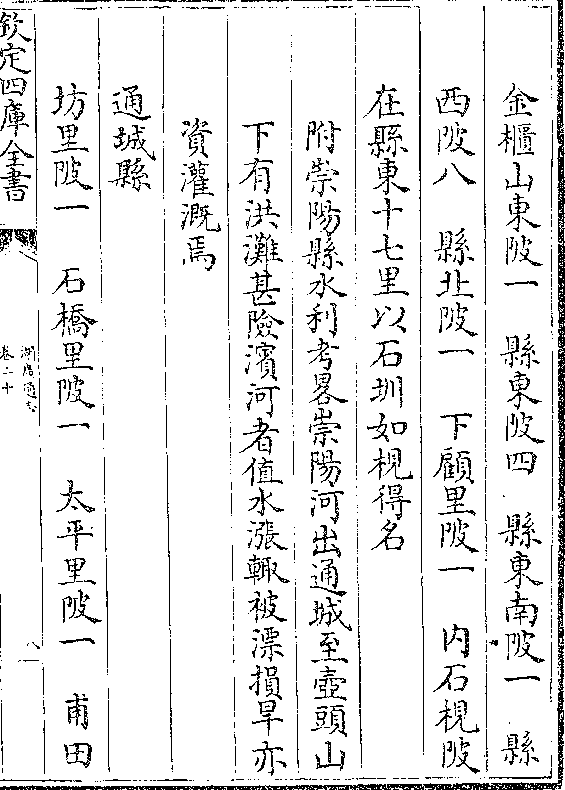 金櫃山東陂一　縣東陂四　縣東南陂一　縣
西陂八　縣北陂一　下顧里陂一　内石梘陂
在縣東十七里以石圳如梘得名
附崇陽縣水利考畧崇陽河出通城至壺頭山
下有洪灘甚險濱河者值水漲輙被漂損旱亦
資灌溉焉
通城縣
坊里陂一　石橋里陂一　太平里陂一　甫田
欽定四庫全書
湖廣通志
卷二十